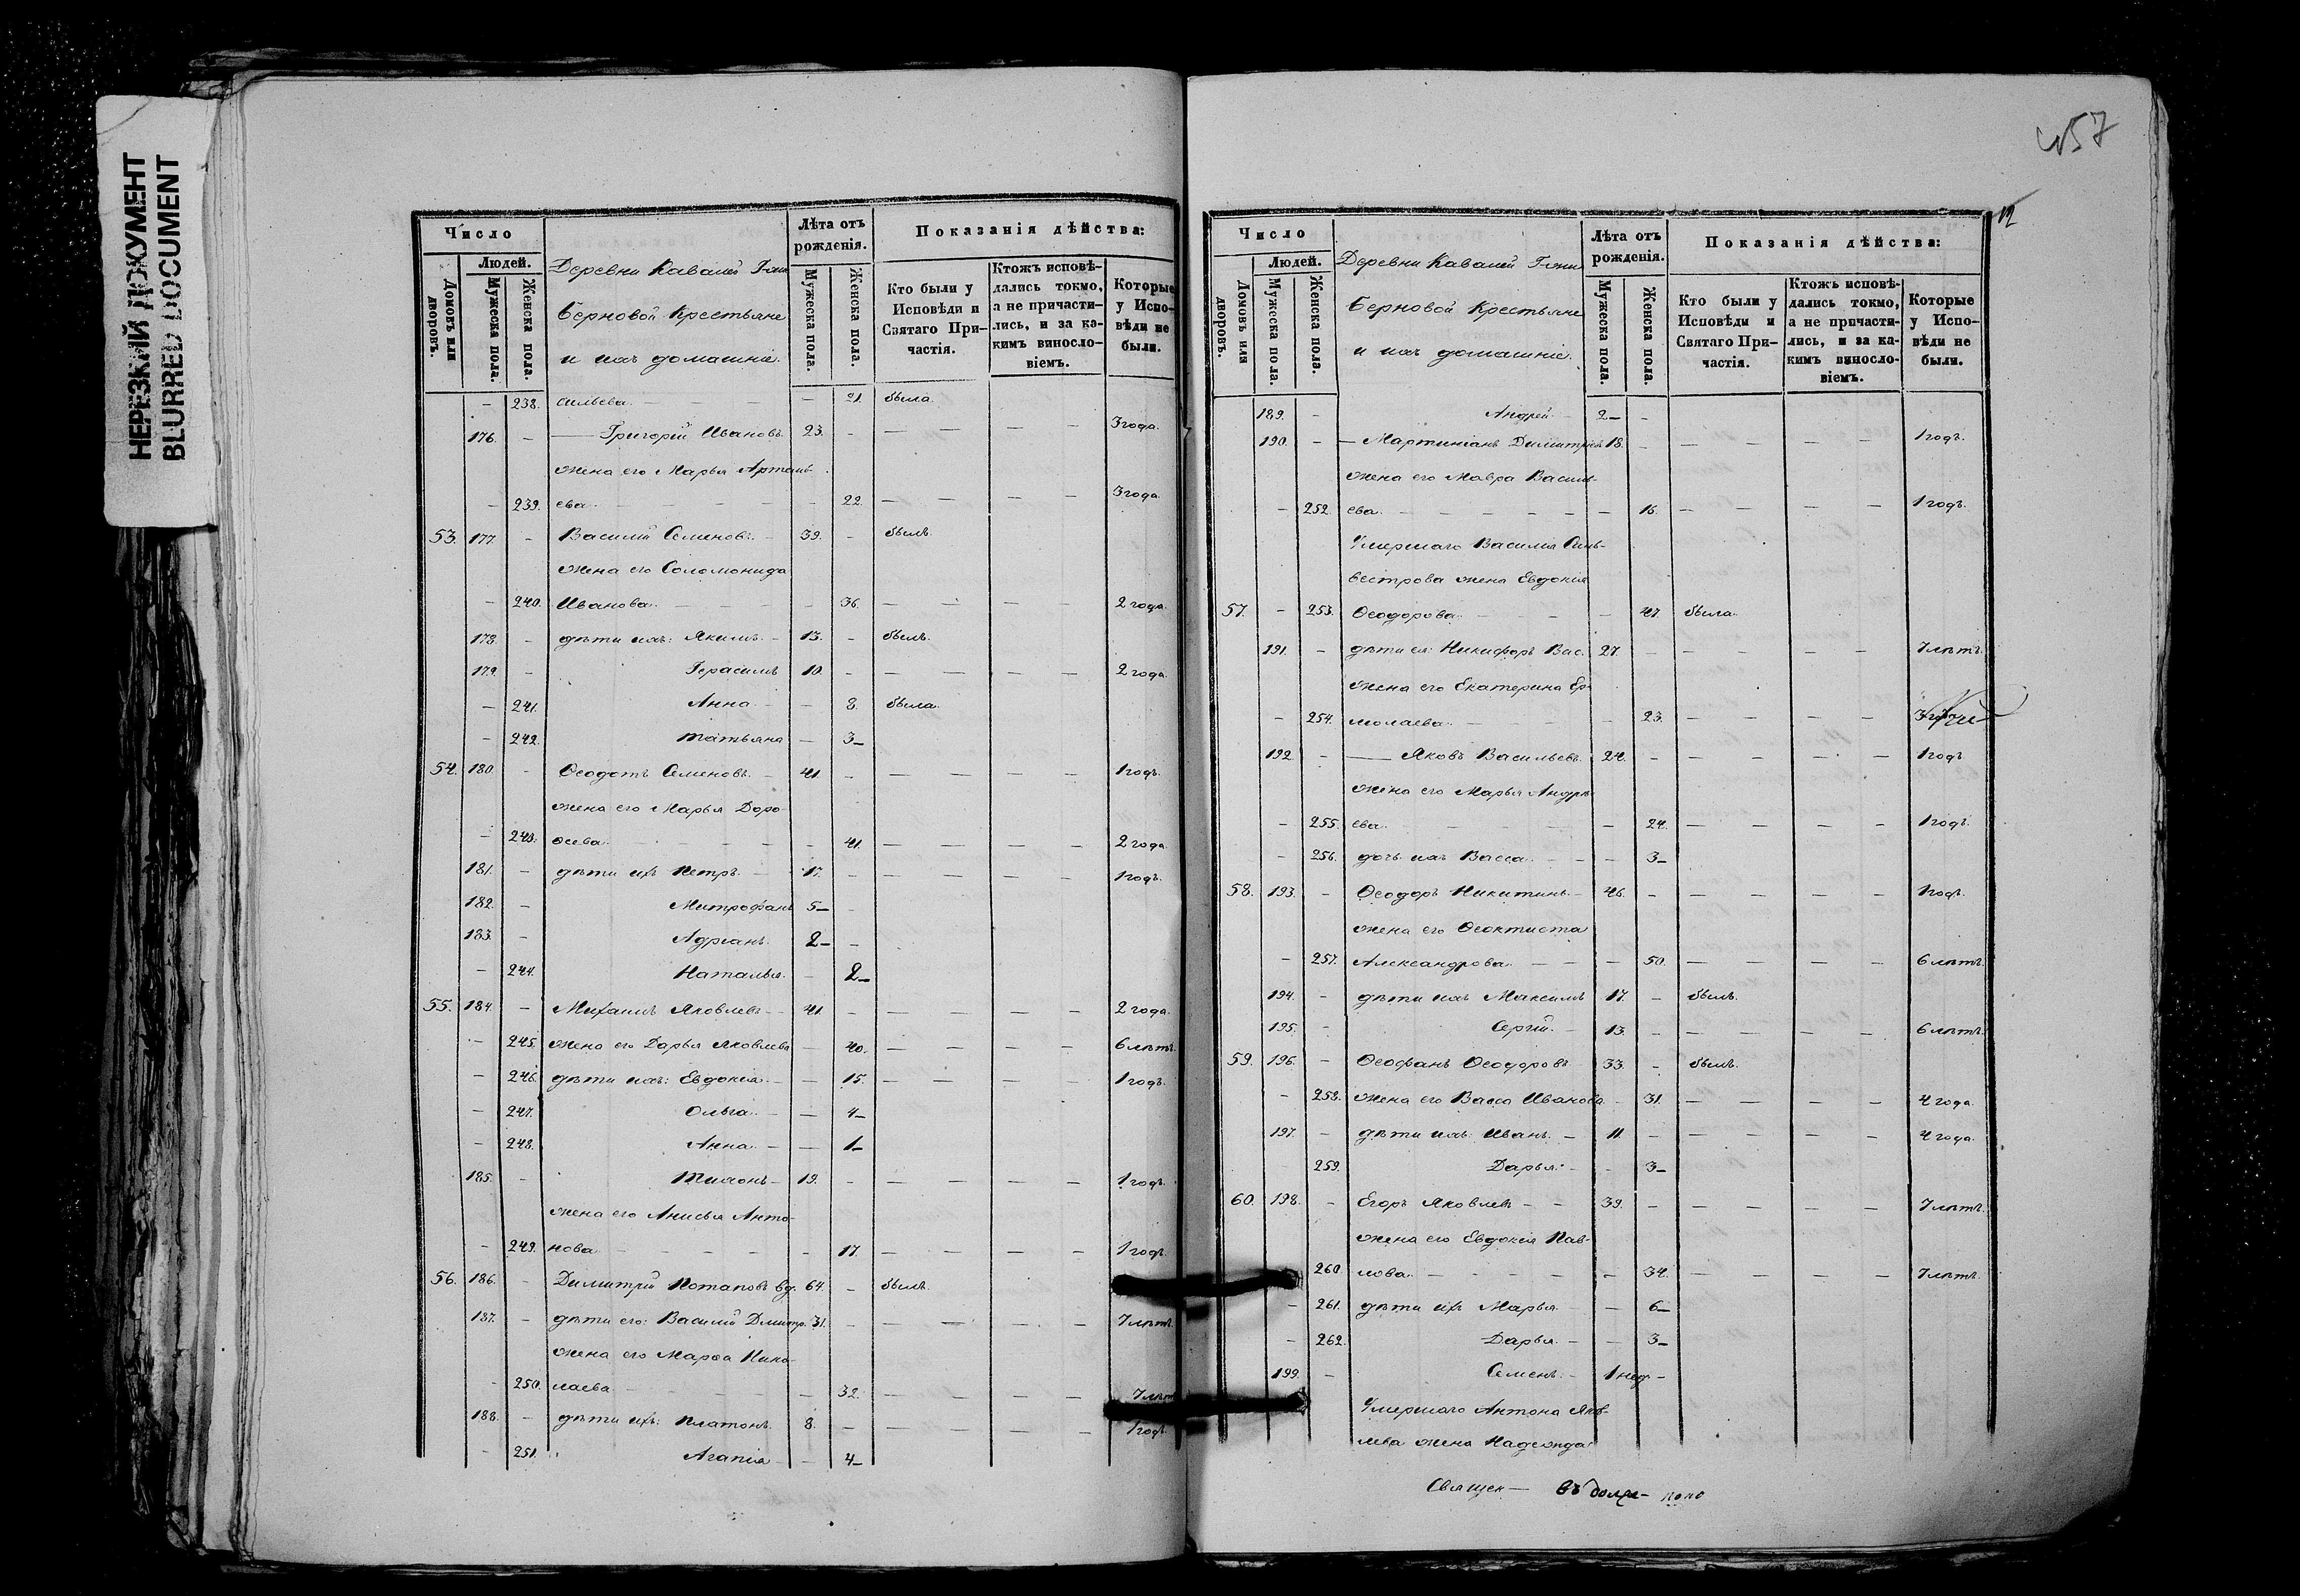 НЕРЕЗКИЙ ДОКУМЕНТ
BLURRED DOCUMENT
Число
Людей.
Домовъ или дворовъ.
Мужеска пола.
Женска пола.
Деревни Кавалей Г-жи
Берновой Крестьяне
и ихъ домашніе.
Лѣта отъ рожденія.
Мужеска пола.
Женска пола.
Показанія дѣйства:
Кто были у Исповѣди и Святаго Причастія.
Ктожъ исповѣдались токмо, а не причастились, и за какимъ винословіемъ.
Которые у Исповѣди не были.
— 238. сильева. — — — — — 21. была.
176. — — Григорій Ивановъ. 23. — — — — — 3 года.
жена его Марья Артемь-
— 239. ева. — — — — 22. — — — — 3 года.
53. 177. — Василій Семеновъ. — 39. — былъ.
жена его Соломонида
— 240. Иванова. — — — — 36. — — — 2 года.
178. — дѣти ихъ: Якимъ. — 13. — былъ.
179. — Герасимъ 10. — — — — — 2 года.
— 241. Анна. — — 8. была.
— 242. Татьяна — 3—
54. 180. — Ѳеодотъ Семеновъ. — 41. — — — — — 1 годъ.
жена его Марья Доро-
— 243. ѳеева. — — — — — 41. — — — — 2 года.
181. — дѣти ихъ Петръ. — 17. — — — — — 1 годъ.
182. — Митрофанъ 5— —
183. — Адріанъ. 2— —
— 244. Наталья. — 2—
55. 184. — Михаилъ Яковлевъ — 41. — — — — — 2 года.
— 245. жена его Дарья Яковлева — 40. — — — — 6 лѣтъ.
— 246. дѣти ихъ: Евдокія. — — 15. — — — — 1 годъ.
— 247. Ольга. — — 4—
— 248. Анна. — — 1—
185. — Тихонъ — 19. — — — — — 1 годъ.
жена его Анисья Анто-
— 249. нова. — — — — — 17. — — — — 1 годъ.
56. 186. — Димитрій Потаповъ вд. 64. — былъ.
187. — дѣти его: Василій Дмитр. 31. — — — — — 7 лѣтъ.
жена его Марѳа Нико-
— 250. лаева — — — — 32. — — — — 7 лѣтъ
188. — дѣти ихъ: Платонъ. 8. — — — — — 1 годъ.
— 251. Агапія — — 4—
457
12
Число
Людей.
Домовъ или дворовъ.
Мужеска пола.
Женска пола.
Деревни Кавалей Г-жи
Берновой Крестьяне
и ихъ домашніе.
Лѣта отъ рожденія.
Мужеска пола.
Женска пола.
Показанія дѣйства:
Кто были у Исповѣди и Святаго Причастія.
Ктожъ исповѣдались токмо, а не причастились, и за какимъ винословіемъ.
Которые у Исповѣди не были.
189. — Андрей. — 2— —
190. — — Мартиніанъ Димитріевъ 18. — — — — — 1 годъ.
жена его Мавра Василь-
— 252. ева. — — — — — — 16. — — — — 1 годъ.
Умершаго Василія Силь-
вестрова жена Евдокія
57. — 253. Ѳеодорова. — — — — 47. была.
191. — дѣти ея: Никифоръ Вас. 27. — — — — — 7 лѣтъ.
жена его Екатерина Ер-
— 254. молаева. — — — — 23. — — — —
192. — — Яковъ Васильевъ. 24. — — — — — 1 годъ
жена его Марья Андре-
— 255. ева. — — — — — 24. — — — — 1 годъ.
— 256. дочь ихъ Васса. — — — 3—
58. 193. — Ѳеодоръ Никитинъ. — 46. — — — — — 1 годъ.
жена его Ѳеоктиста
— 257. Александрова. — — — 50. — — — — 6 лѣтъ.
194. — дѣти ихъ Максимъ 17. — былъ.
195. — Сергій. — 13. — — — — — 6 лѣтъ.
59. 196. — Ѳеофанъ Ѳеодоровъ 33. — былъ.
— 258. жена его Васса Иванова. — 31. — — — — 4 года.
197. — дѣти ихъ: Иванъ. — 11. — — — — — 4 года.
259. Дарья. — — 3—
60. 198. — Егоръ Яковлевъ — — 39. — — — — — 7 лѣтъ.
жена его Евдокія Пав-
260. лова. — — — — — 34. — — — — 7 лѣтъ.
— 261. дѣти ихъ Марья. — — 6—
— 262. Дарья. — — 3—
199. — Семенъ. — 1 нед. —
Умершаго Антона Яков-
лева жена Надежда
Священ—